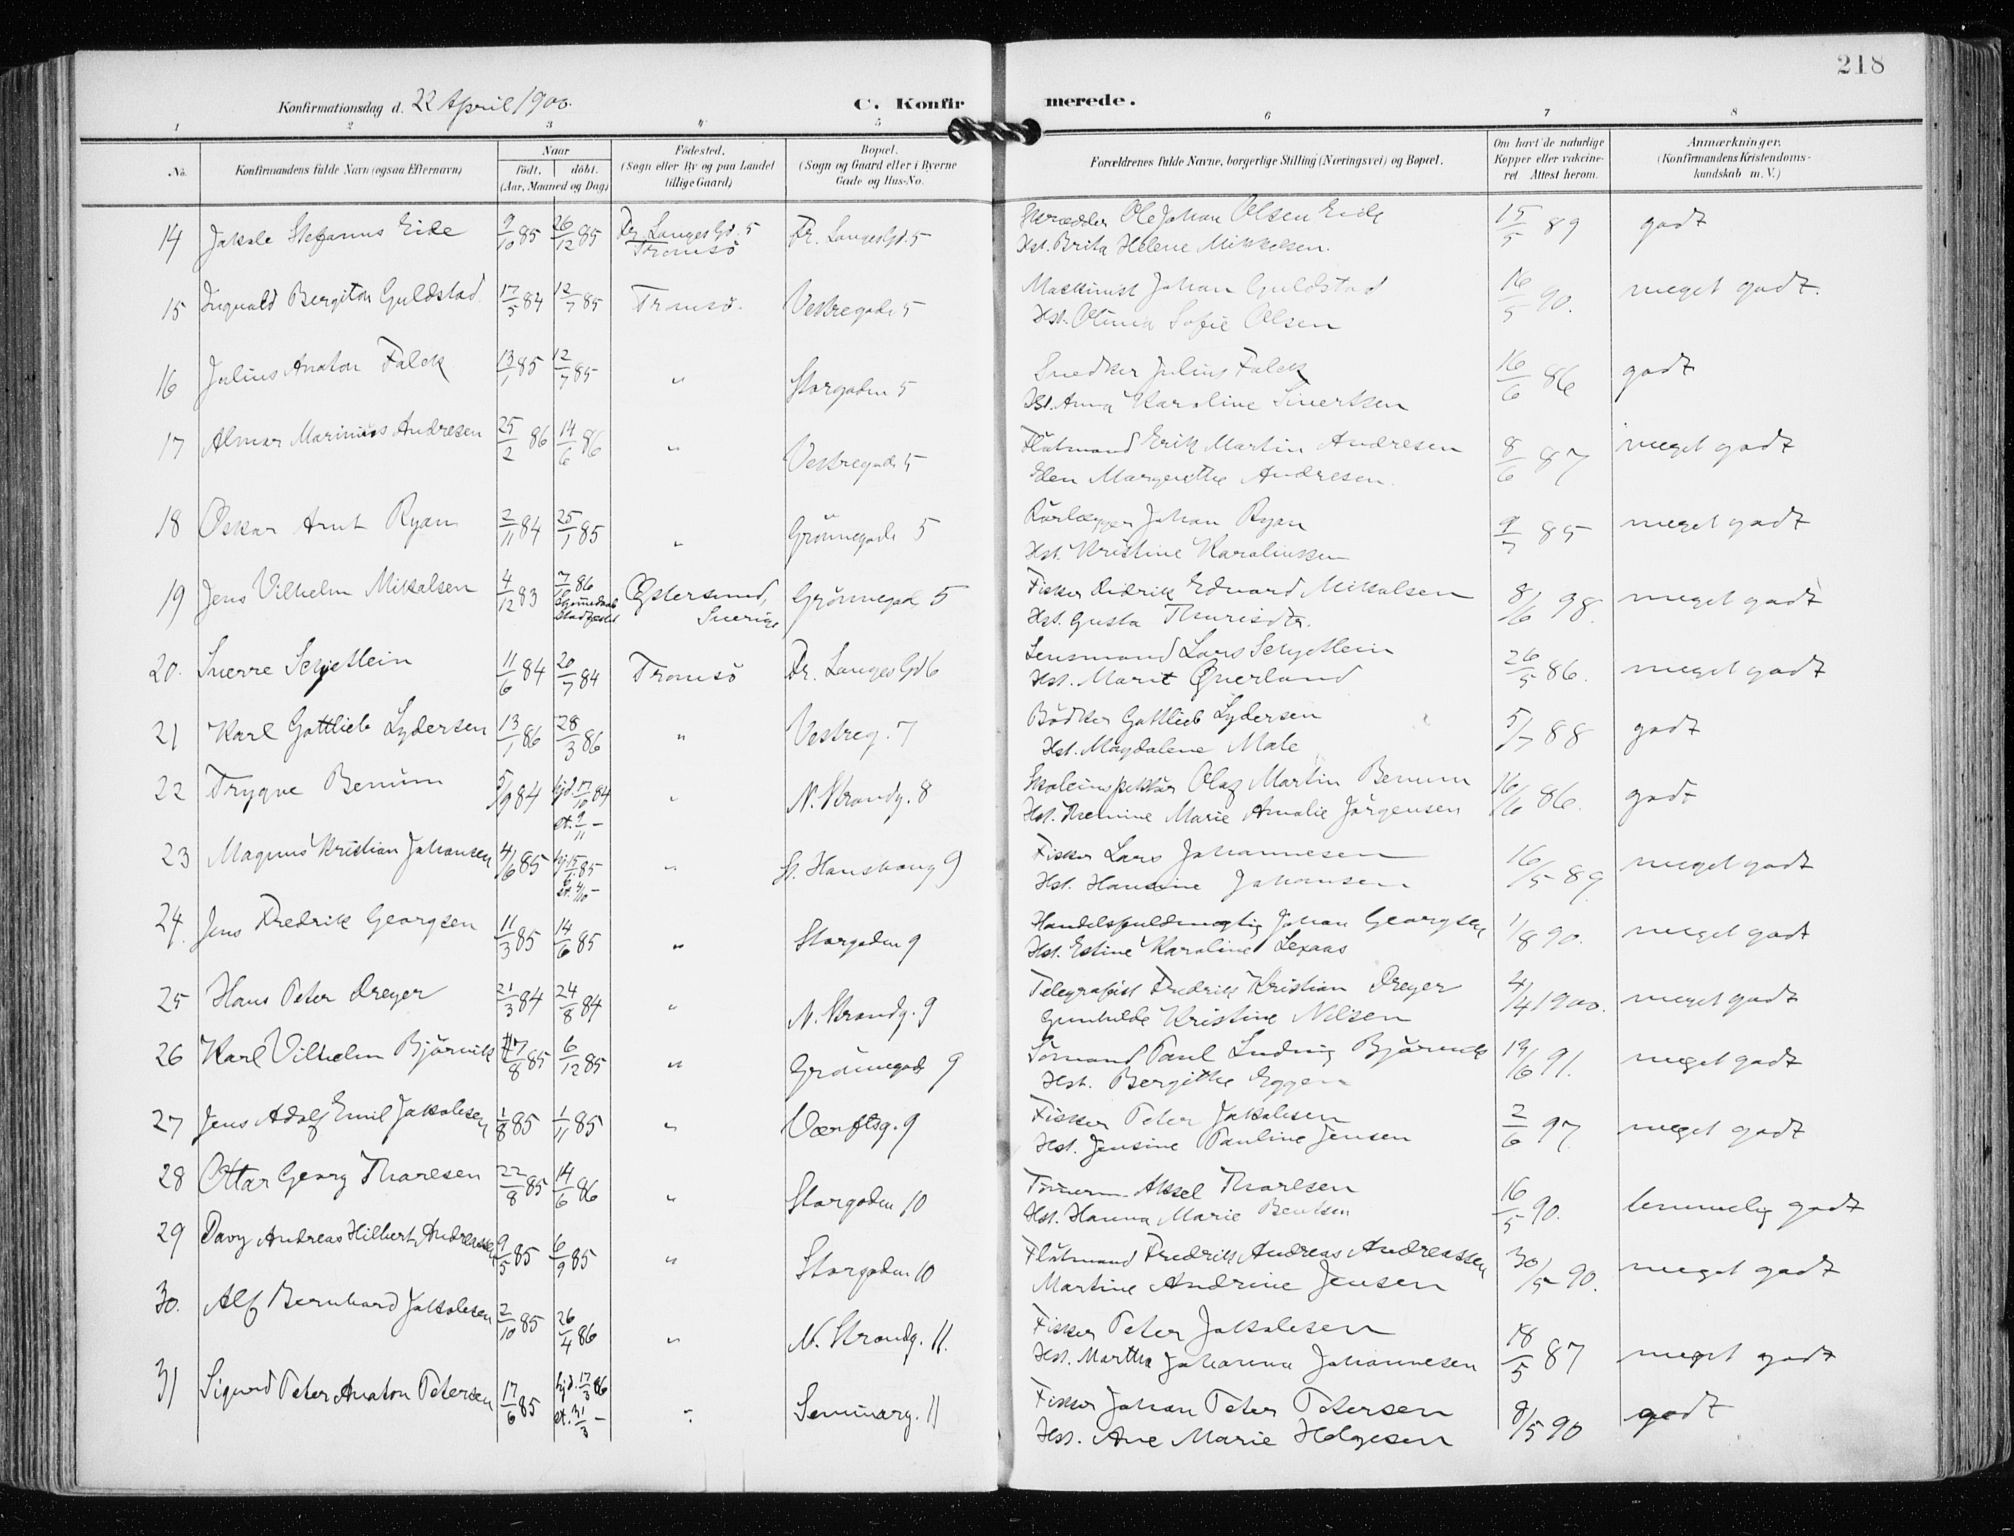 218
Konfirmationsdag d. 22 April 1900.
C. Konfirmerede.
1 2 3 4 5 6 7 8
No. Konfirmandens fulde Navn (ogsaa Efternavn) Naar født, døbt. (Aar, Maaned og Dag) Fødested, (Sogn eller By og paa Landet tillige Gaard) Bopæl. (Sogn og Gaard eller i Byerne Gade og Hus-No. Forældrenes fulde Navne, borgerlige Stilling (Næringsvei) og Bopæl. Om havt de naturlige Kopper eller vaccineret. Attest herom. Anmærkninger. (Konfirmandens Kristendomskundskab m. V.)
14 Jakob Stefanus Eide 9/10 85 26/12 85 Dr. Langes Gd. 5 Tromsö Dr. Langes Gd. 5 Skrædder Ole Johan Olsen Eide 15/5 89 godt
Hst. Brita Helene Mikkelsen.
15 Ingvald Bergiton Guldstad 17/5 84 12/7 85 Tromsö. Vestregade 5 Maskinist Johan Guldstad 16/5 90. meget godt.
Hst. Olina Sofie Olsen
16 Julius Anaton Falck 13/1 85 12/7 85 " Storgaden 5 Snedker Julius Falck 16/6 86 godt
Hst. Anna Karoline Sivertsen
17 Almar Marinius Andresen 25/2 86 14/6 86 " Vestregade 5 Flåtmand Erik Martin Andresen 8/6 87 meget godt
Elen Margrethe Andresen.
18 Oskar Arnt Ryan 2/11 84 25/1 85 " Grönnegade 5 Rörlægger Johan Ryan 9/7 85 meget godt
Hst. Kristine Karoliussen
19 Jens Vilhelm Mikalsen 4/12 83 86 Østersund, Sverige Grönnegade 5 Fisker Didrik Edvard Mikalsen 8/6 98. meget godt
Hst. Gusta Thurisdtr.
20. Sverre Schjetlein 11/6 84 20/7 84 Tromsö Dr. Langes Gd 6 Lensmand Lars Schjetlein 26/5 86. meget godt
Hst. Marit Øverland
21 Karl Gottlieb Lydersen 13/1 86 28/3 86 " Vestreg. 7 Bödker Gottlieb Lydersen 5/7 88 godt
Hst. Magdalene Male
22 Trygve Benum 5/9 84 hjd. 17/10 84 st. 9/11 – " N. Strandg. 8 Skoleinspektör Olaf Martin Benum 16/6 86. godt
Hst. Marie Amalie Jörgensen
23 Magnus Kristian Johansen 4/6 85 hj 15/6 85 st. 4/10 – " St. Hanshaug 9 Fisker Lars Johannesen 16/5 89. meget godt
Hst. Hansine Johansen
24. Jens Fredrik Georgsen 11/3 85 14/6 85 " Storgaden 9 Handelsfuldmægtig Johan Georgsen 1/8 90. meget godt
Hst. Estine Karoline Lexaas
25 Hans Peter Dreyer 21/3 84 24/8 84 " N. Strandg. 9 Telegrafist Fredrik Kristian Dreyer 4/4 1900. meget godt
Gunhilde Kristine Nilsen
26 Karl Vilhelm Björvik 17/8 85 6/12 85 " Grönnegade 9 Sömand Paul Ludvig Björvik 13/6 91. meget godt
Hst. Bergithe Eggen
27 Jens Adolf Emil Jakobsen 1/8 85 1/11 85 " Værftsg. 9 Fisker Peter Jakobsen 2/6 97 meget godt
Hst. Jensine Pauline Jensen
28 Ottar Georg Tharlsen 22/8 85 14/6 86 " Storgaden 10 Tömerm. Aksel Tharlsen 16/5 90. temmelig godt
Hst. Hanna Marie Bentsen
29 Davy Andreas Hilbert Andreassen 9/5 85 6/9 85 " Storgaden 10 Flåtmand Fredrik Andreas Andreassen 30/5 90. meget godt
Martine Andrine Jensen
30. Alf Bernhard Jakobsen 2/10 85 26/4 86 " N. Strandg. 11. Fisker Peter Jakobsen 18/5 87 meget godt
Hst. Martha Johanna Johannesen
31 Sigurd Peter Anaton Petersen 17/6 85 hjd. 17/3 86 st. 31/3 – " Seminarg. 11 Fisker Johan Peter Petersen 8/5 90 godt
Hst. Ane Marie Helgesen